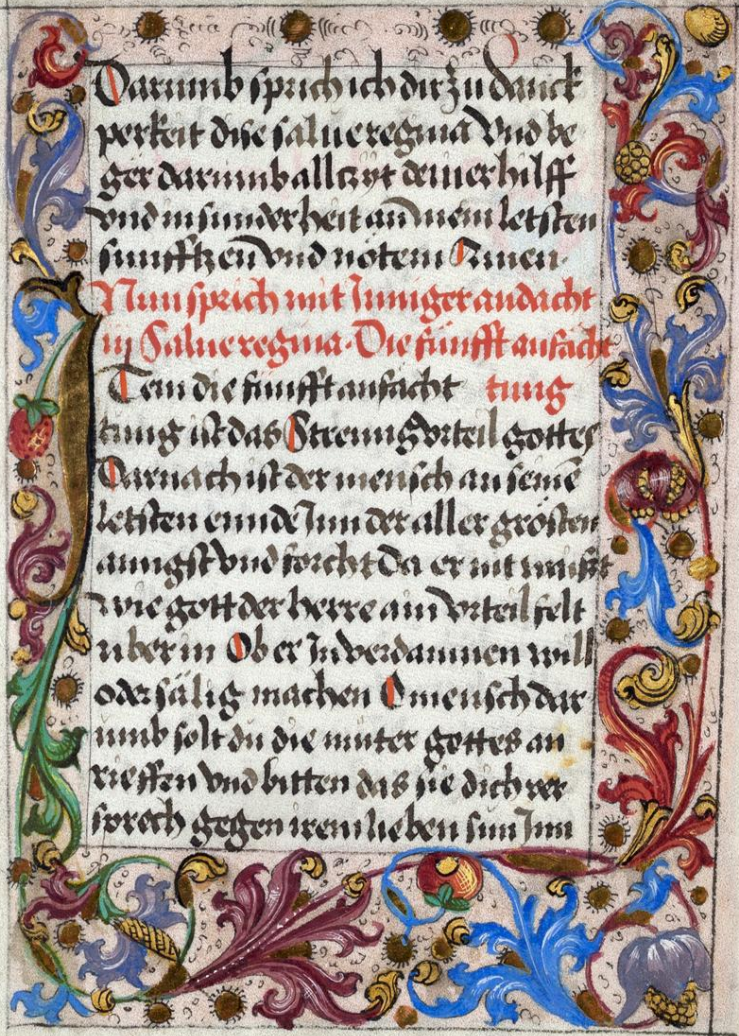 Darumb sprich ich dir zu danck
perkeit dise salue regina Vnd be
ger darumb allczyt deiner hilff
vnd in sunderheit an meim letsten
sunfftzen vnd nötem Amen.
Nun sprich mit Inniger andacht
iij Salue regina. Die fünfft anfacht
Item die fünfft anfacht tung
tung ist das Streing Vrteil gottes
Darnach ist der mensch an seinē
letsten ennde Inn der aller grösten
anngst vnd forcht Da er nit waist
wie gott der herre ain Vrteil felt
über in Ob er In verdammen will
oder sälig machen O mensch dar
umb solt du die muter gottes an
rieffen vnd bitten das sie dich ver
sprech gegen irem lieben sun Inn